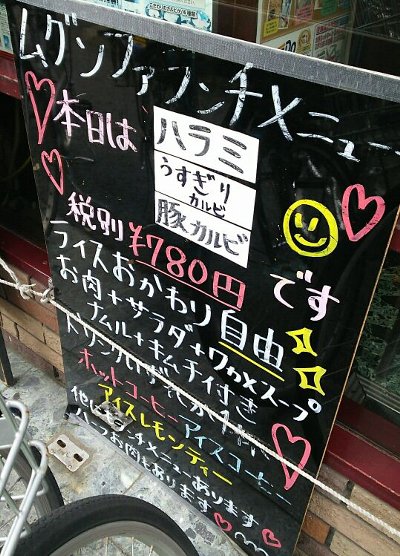 ムグンファランチメニュー
本日は
ハラミ
うすぎり
カルビ
豚カルビ
税別¥780円です
ライスおかわり自由
お肉+サラダ+ワカメスープ
ナムル+キムチ付き
ホットコーヒーアイスコーヒー
アイスレモンティー
メニューあります
お肉もあります